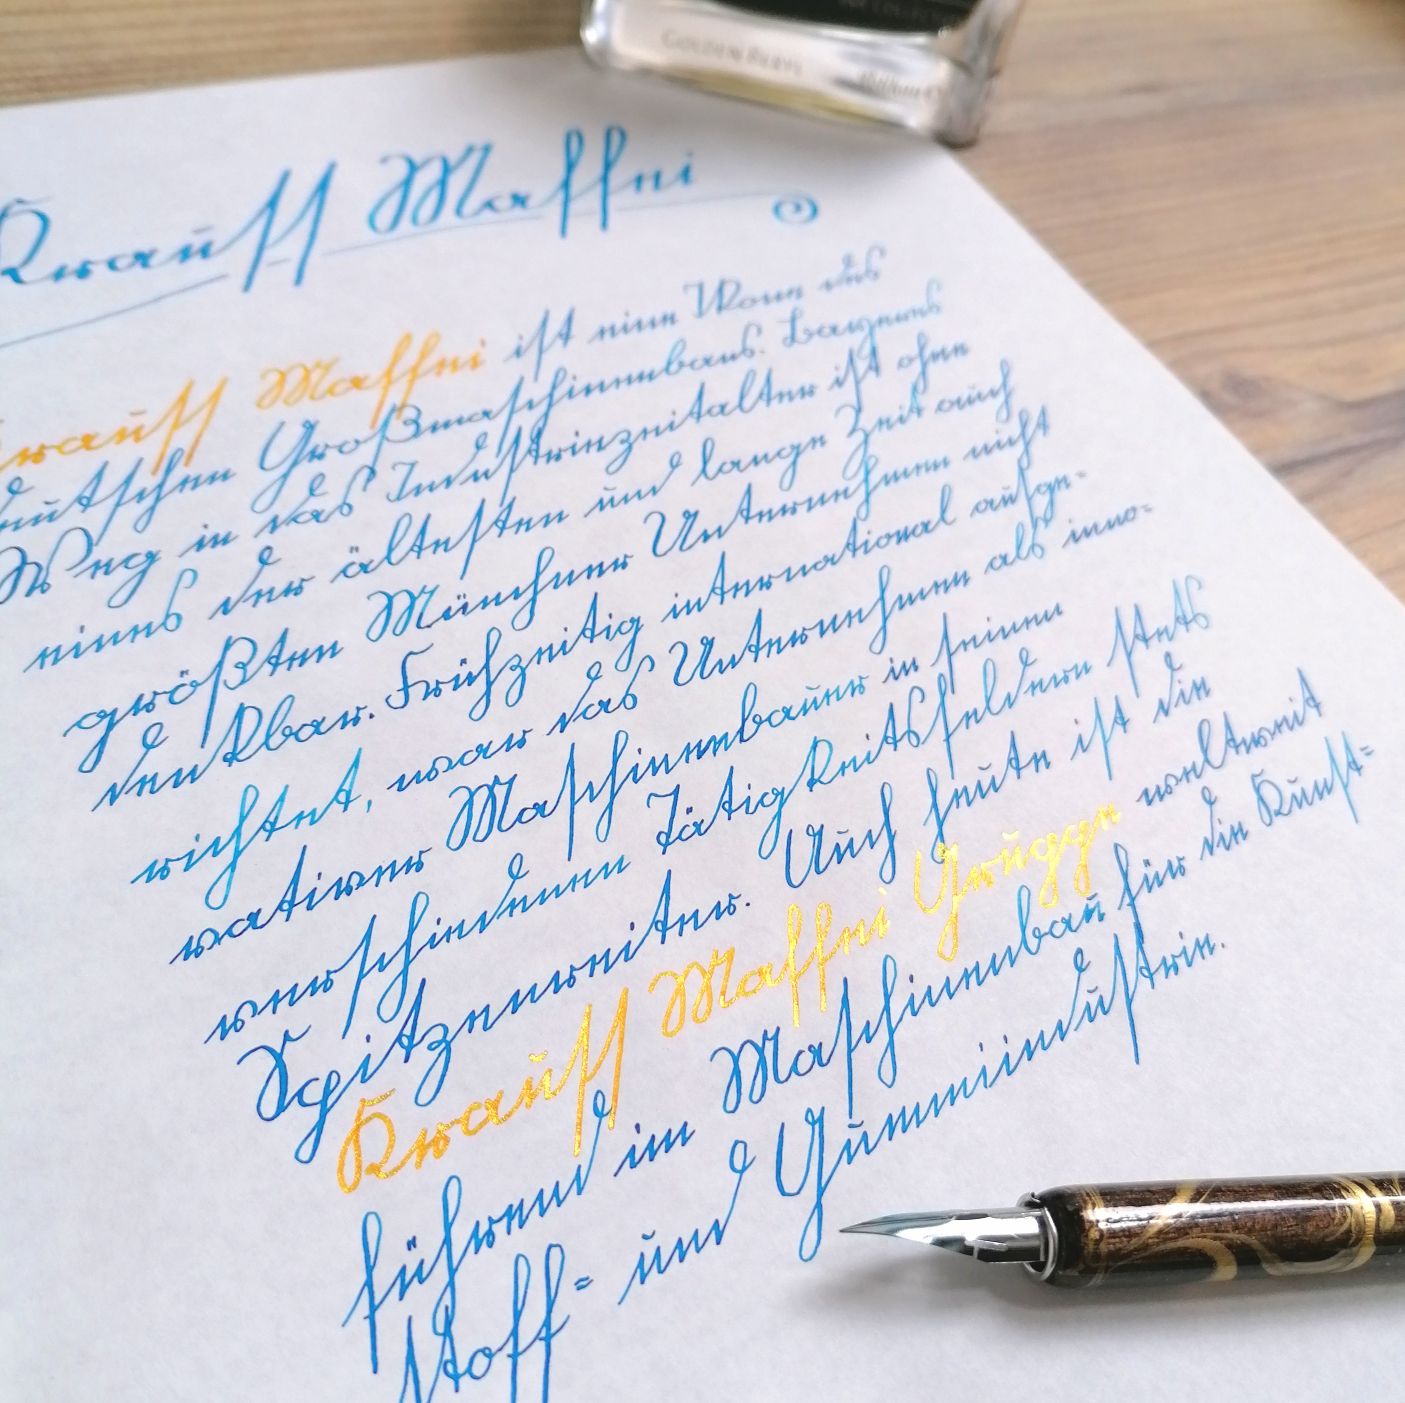 GOLDEN BERYL
Krauss Maffei
Krauss Maffei ist eine Ikone des
deutschen Großmaschinenbaus. Bayerns
Weg in das Industriezeitalter ist ohne
eines der ältesten und lange Zeit auch
größten Münchner Unternehmen nicht
denkbar. Frühzeitig international ausge-
richtet, war das Unternehmen als inno-
vativer Maschinenbauer in seinen
verschiedenen Tätigkeitsfeldern stets
Spitzenreiter. Auch heute ist die
Krauss Maffei Gruppe weltweit
führend im Maschinenbau für die Kunst=
stoff= und Gummiindustrie.